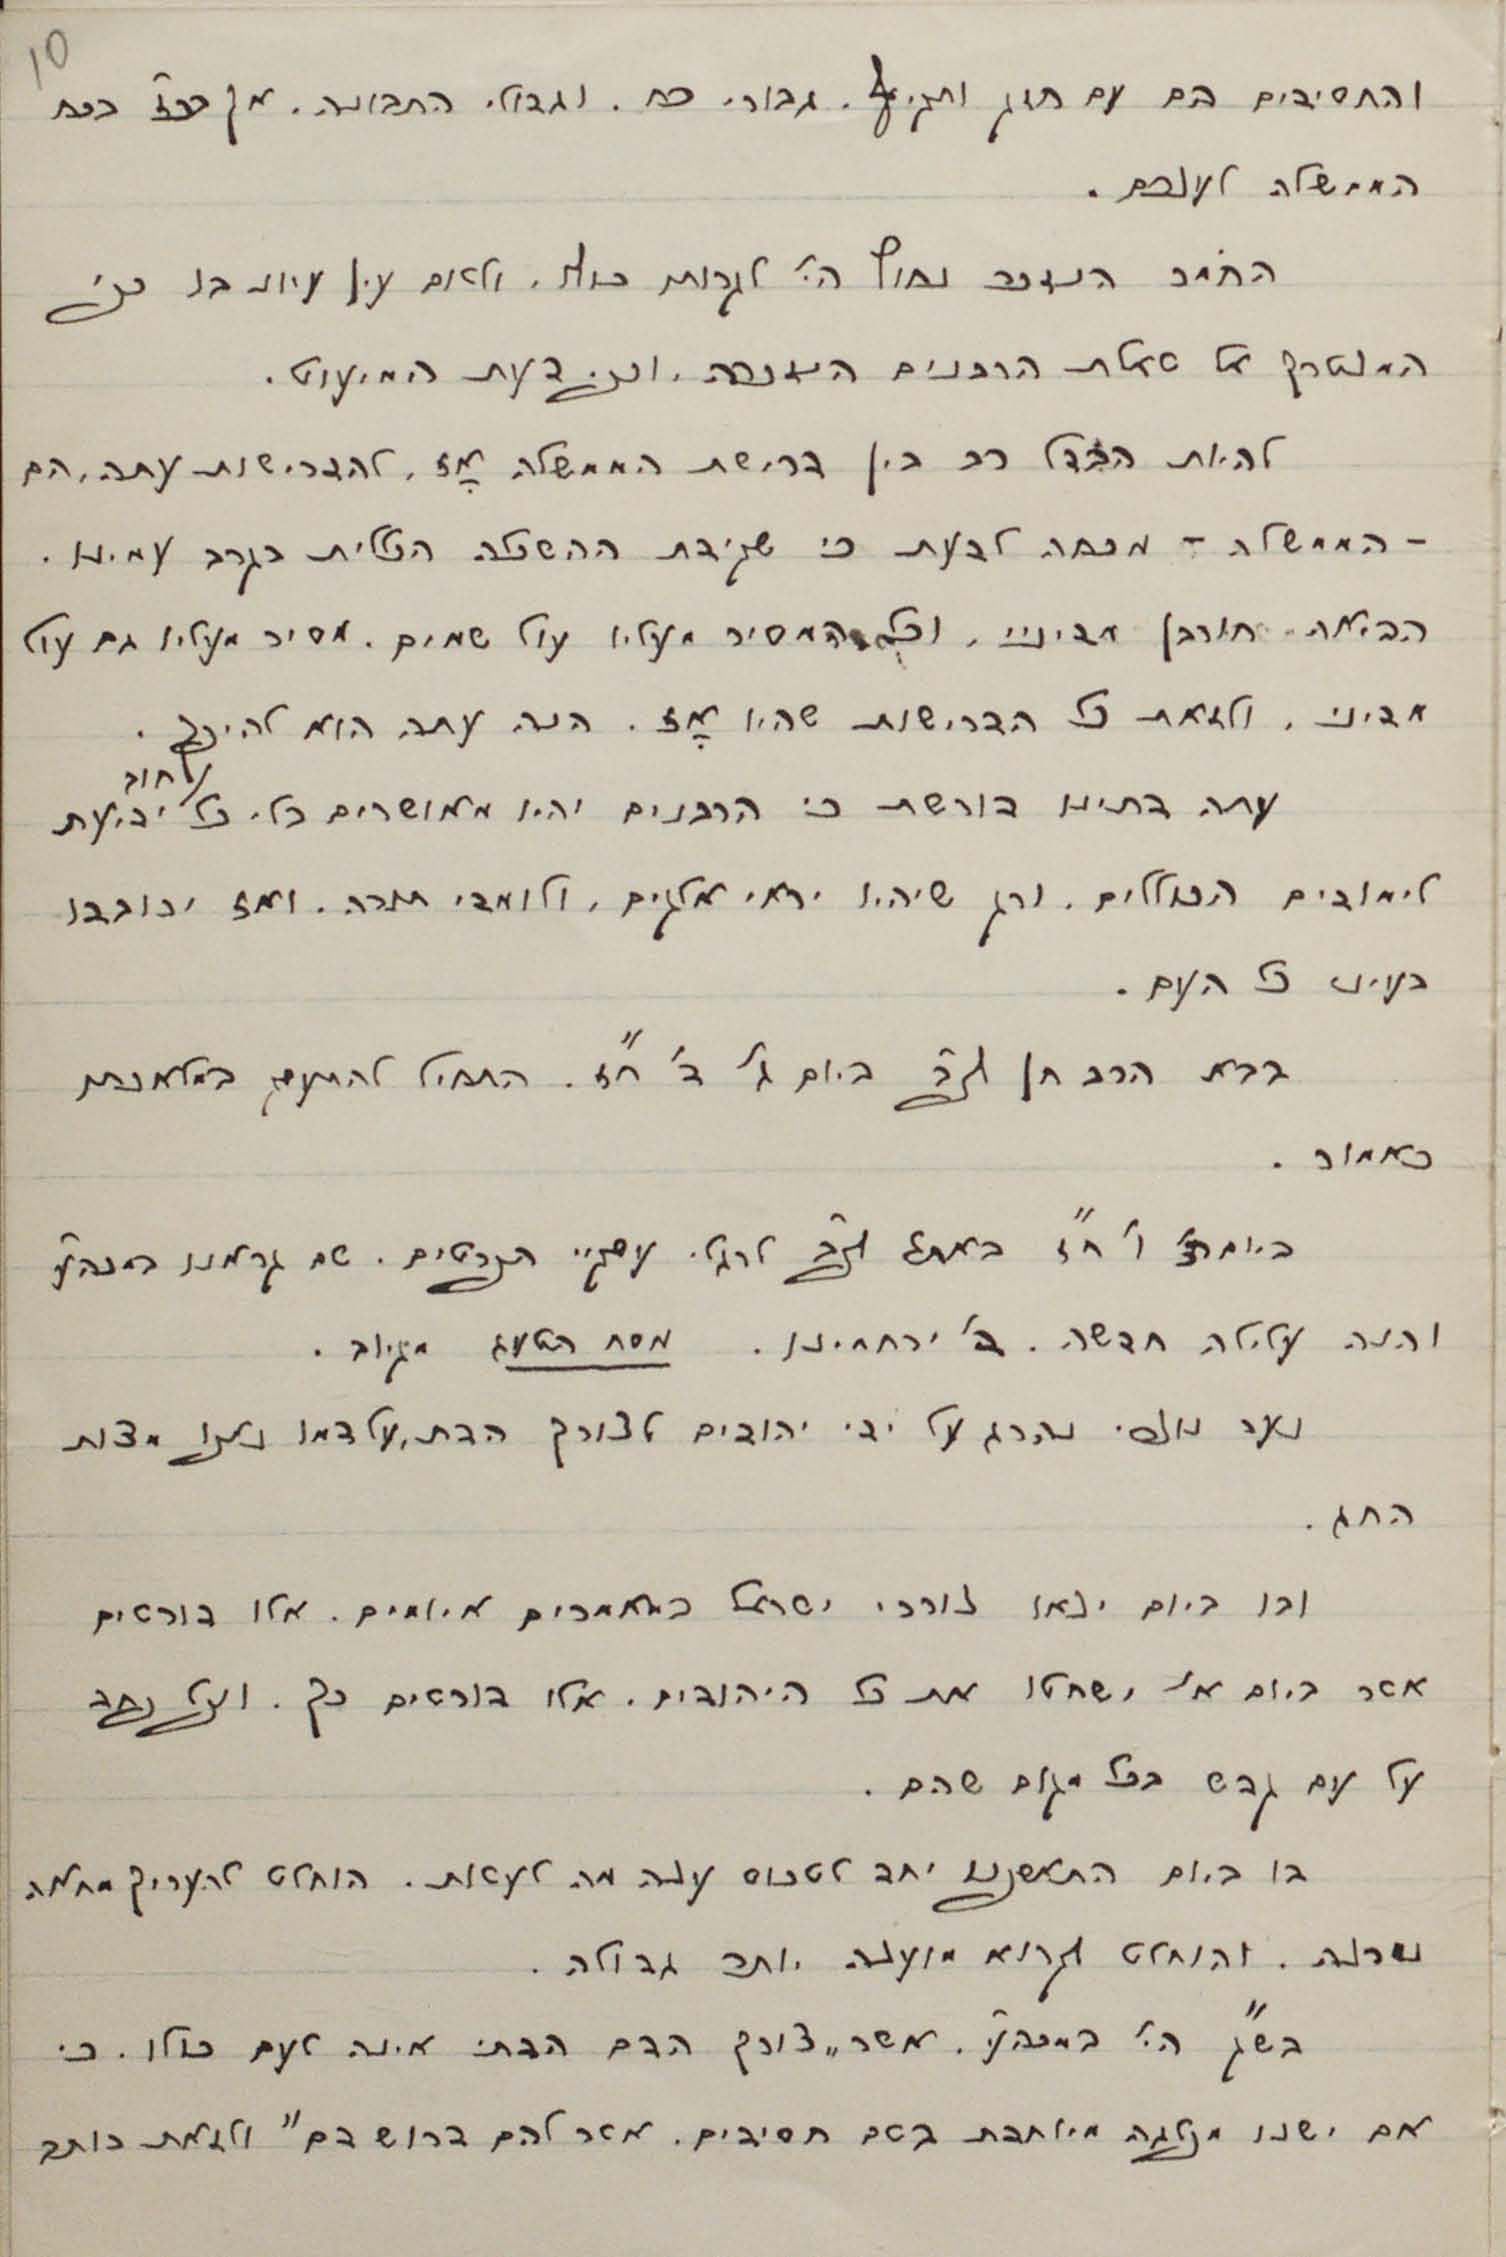 10
והחסידים הם עם חזק ותקיף. גבורי כח. וגדולי התבונה. אך בכח
הממשלה לענותם.
החומר הנדבר נחוץ הי' לקרות כולו, ולשום עין עיונו בו כפי
המצטרף אל שאלת הרבנים הנוכחה, וכפי דעת המיעוט.
להיות הבדל רב בין דרישת הממשלה אָז, להדרישות עתה, הם
- הממשלה - מנסה לדעת כי שקידת ההשכלה הכללית בקרב עמינו.
הביאה חורבן מדיניי, וכל המסיר מעליו עול שמים. מסיר מעליו גם עול
מדיני, ולזאת כל הדרישות שהיו אָז. הנה עתה הוא להיפך.
עתה דתינו דורשת כי הרבנים יהיו מאושרים בלי כל חוב ידיעת
לימודים הכוללים. ורק שיהיו יראי אלקים, ולומדי תורה. ואז יכובדו
בעיני כל העם.
בבוא הרב חן לפ"ב ביום ג' ד' חז"ר. התחיל להתעסק במלאכתו
כאמור.
ביום ו' חז"ר באתי לפ"ב לרגלי עסקיי הפרטים. שם קראנו במכה"ע
והנה עלילה חדשה. ה' ירחמינו. נוסח הטעלעג מקיוב.
נער נוצרי נהרג על ידי יהודים לצורך הדת, על דמו נאפו מצות
החג.
ובו ביום יצאו צוררי ישראל במאמרים איומים. אלו דורשים
אשר ביום א' ישחטו את כל היהודים. אלו דורשים כך. וכולם יחד
על עם קדש בכל מקום שהם.
בו ביום התאספנו יחד לטכוס עצה מה לעשות. הוחלט להעריך מחאה
נמרצה. והוחלט לקרוא מועצה יותר גדולה.
בש"ק הי' במכה"ע. אשר „צורך הדם הדתי אינה לעם כולו. כי
אם ישנו מפלגה מיוחדת בשם חסידים. אשר להם דרוש דם" ולזאת כותב